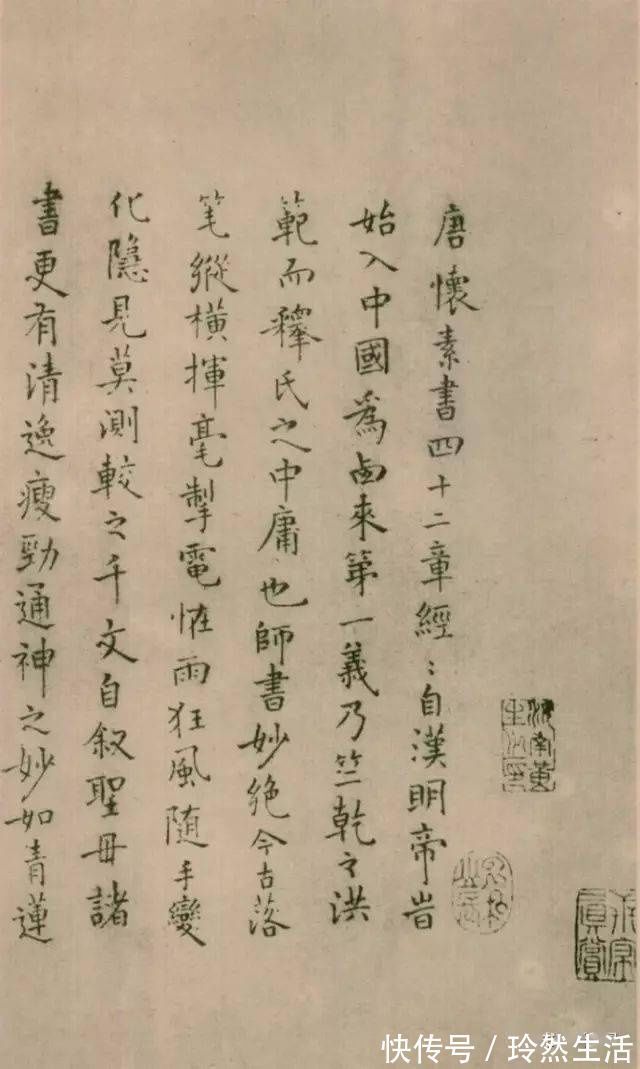 唐懷素書四十二章經〻自漢明帝旹
始入中國為卥來第一義乃竺乾之洪
範而釋氏之中庸也師書妙絕今古落
笔縱橫揮毫掣電恠雨狂風随手變
化隱見莫測較之千文自叙聖母諸
書更有清逸瘦勁通神之妙如青蓮
快传号 / 玲然生活